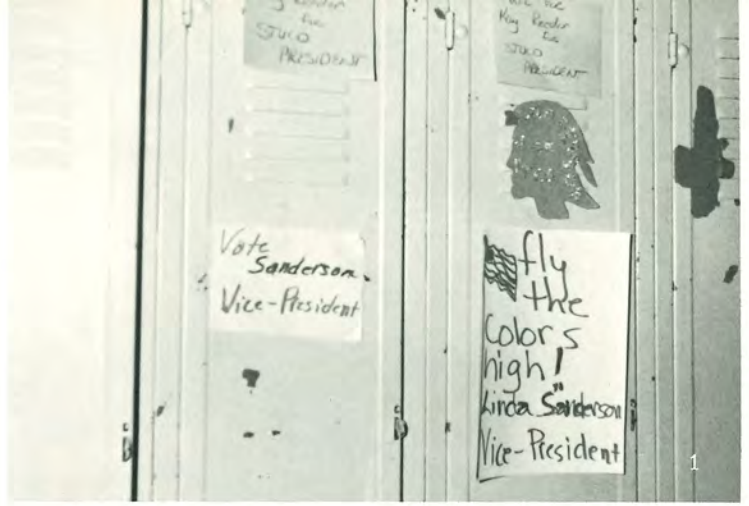 for
STUCO
PRESIDENT
for
STUCO
PRESIDENT
Vote
Sanderson
Vice-President
fly
the
Colors
high!
Linda Sanderson
Vice-President
1